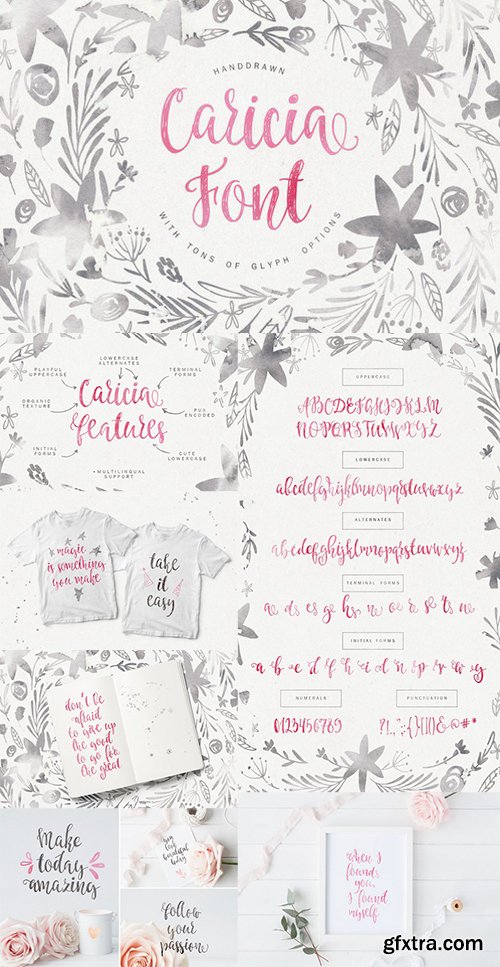 HANDDRAWN
Caricia
Font
WITH TONS OF GLYPH OPTIONS
PLAYFUL
UPPERCASE
LOWERCASE
ALTERNATES
TERMINAL
FORMS
ORGANIC
TEXTURE
Caricia
features
PUA
ENCODED
INITIAL
FORMS
CUTE
LOWERCASE
+MULTILINGUAL
SUPPORT
UPPERCASE
ABCDEFGHIJKLM
NOPQRSTUVWXYZ
LOWERCASE
abcdefghijklmnopqrstuvwxyz
ALTERNATES
abcdefghijklmnopqrstuvwxyz
TERMINAL FORMS
INITIAL FORMS
NUMERALS
0123456789
PUNCTUATION
magic
is something
you make
take
it
easy
don't be
afraid
to give up
the good
to go for
the great
Make
today
amazing
beautiful
today
follow
your
passion
when I
found
you,
I found
myself
gfxtra.com